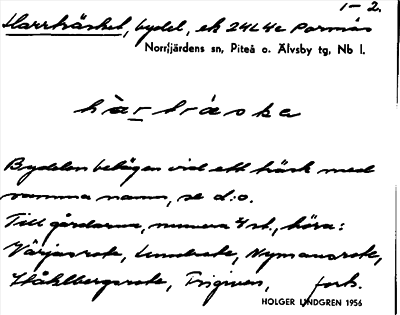 1-2.
Harrträsket, bydel, ek 24L4c Porsnäs
Norrfjärdens sn, Piteå o. Älvsby tg, Nb l.
hàr-tráska
Bydelen belägen vid ett träsk med
samma namn, se d:o.
Till gårdarna, numera 4 st., höra:
Värjasrote, Lundrote, Nymansrote,
Ståhlbergsrote, Trigiven, forts.
HOLGER LINDGREN 1956